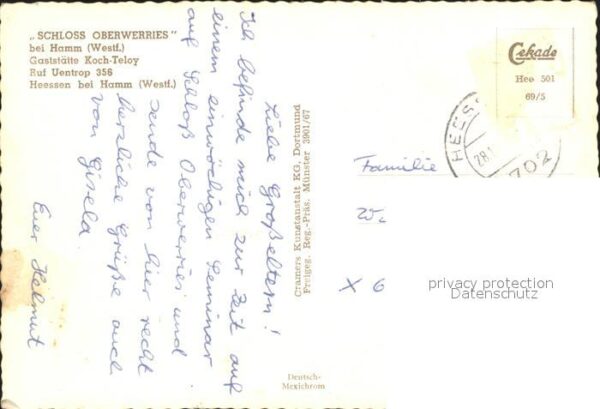 „SCHLOSS OBERWERRIES"
bei Hamm (Westf.)
Gaststätte Koch-Teloy
Ruf Uentrop 356
Heessen bei Hamm (Westf.)
Liebe Großeltern!
Ich befinde mich zur Zeit auf
einem einwöchigen Seminar
auf Schloß Oberwerries und
sende von hier recht
herzliche Grüße auch
von Gisela.
Euer Helmut
Cramers Kunstanstalt KG, Dortmund
Freigeg. Reg.-Präs. Münster 3901/67
Deutsch-
Mexichrom
Cekade
Hee 501
69/5
HEESS
28.
702
Familie
W.
X 6
privacy protection
Datenschutz